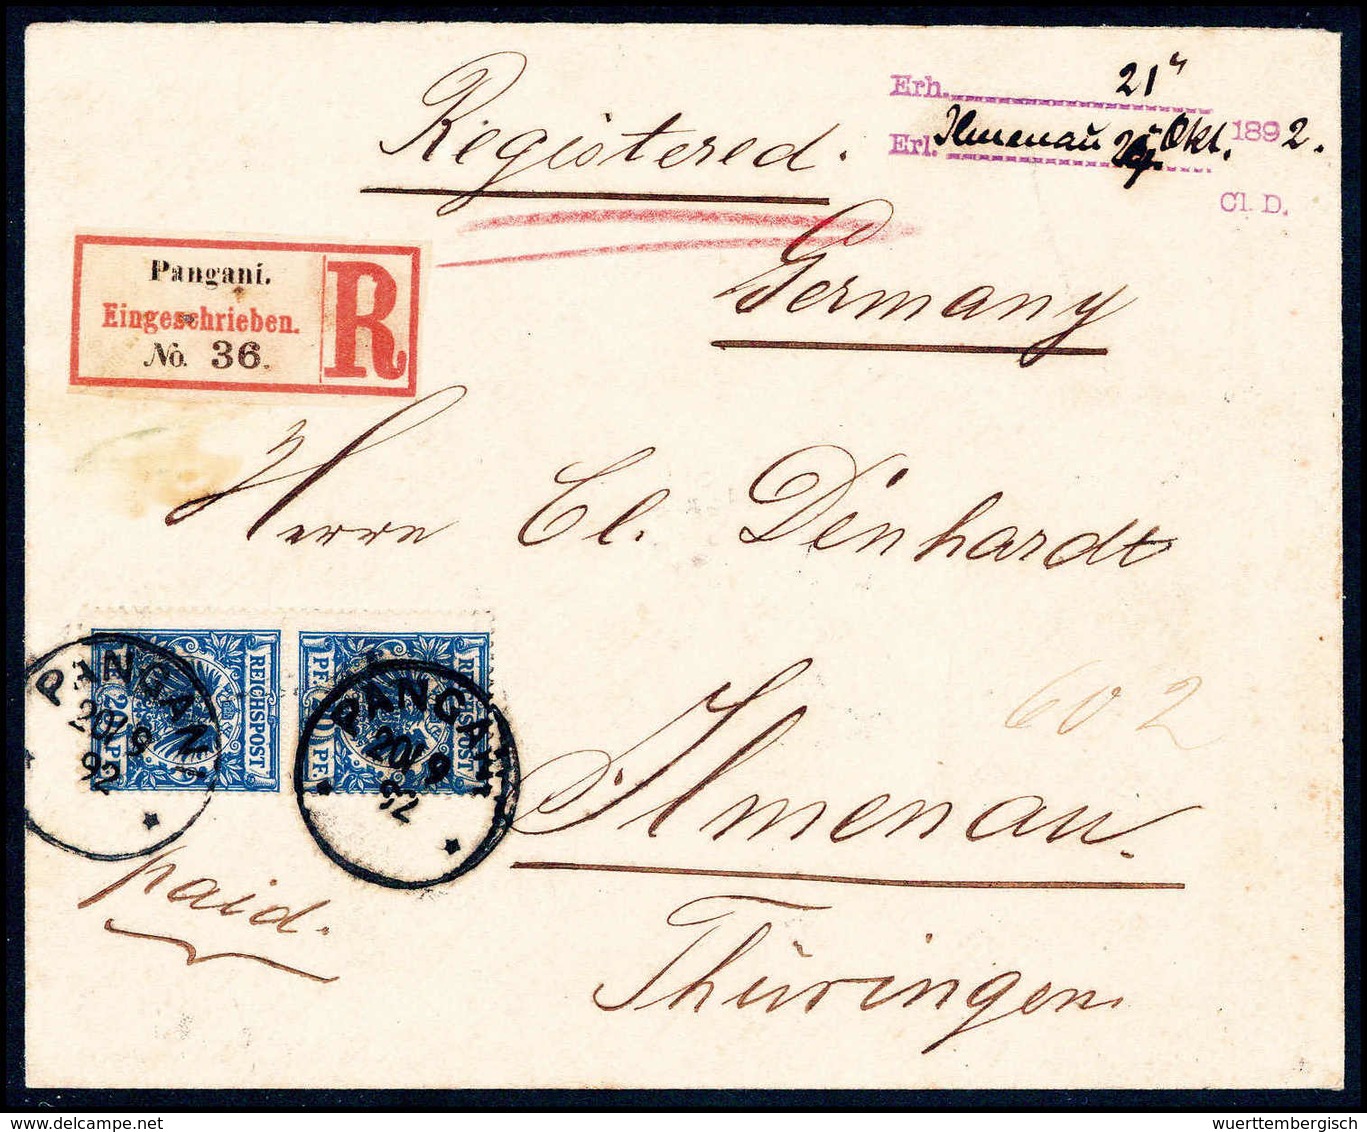 Registered.
Erh. 21
Erl. Ilmenau Okt. 1892.
Cl. D.
Germany
Pangani.
Eingeschrieben.
No. 36.
R
Herrn Cl. Denhardt
Ilmenau.
Thüringen
602
REICHSPOST
20 PF.
REICHSPOST
20 PF.
PANGANI
20/9
92
PANGANI
20/9
92
paid.
delcampe.net
wuerttembergisch